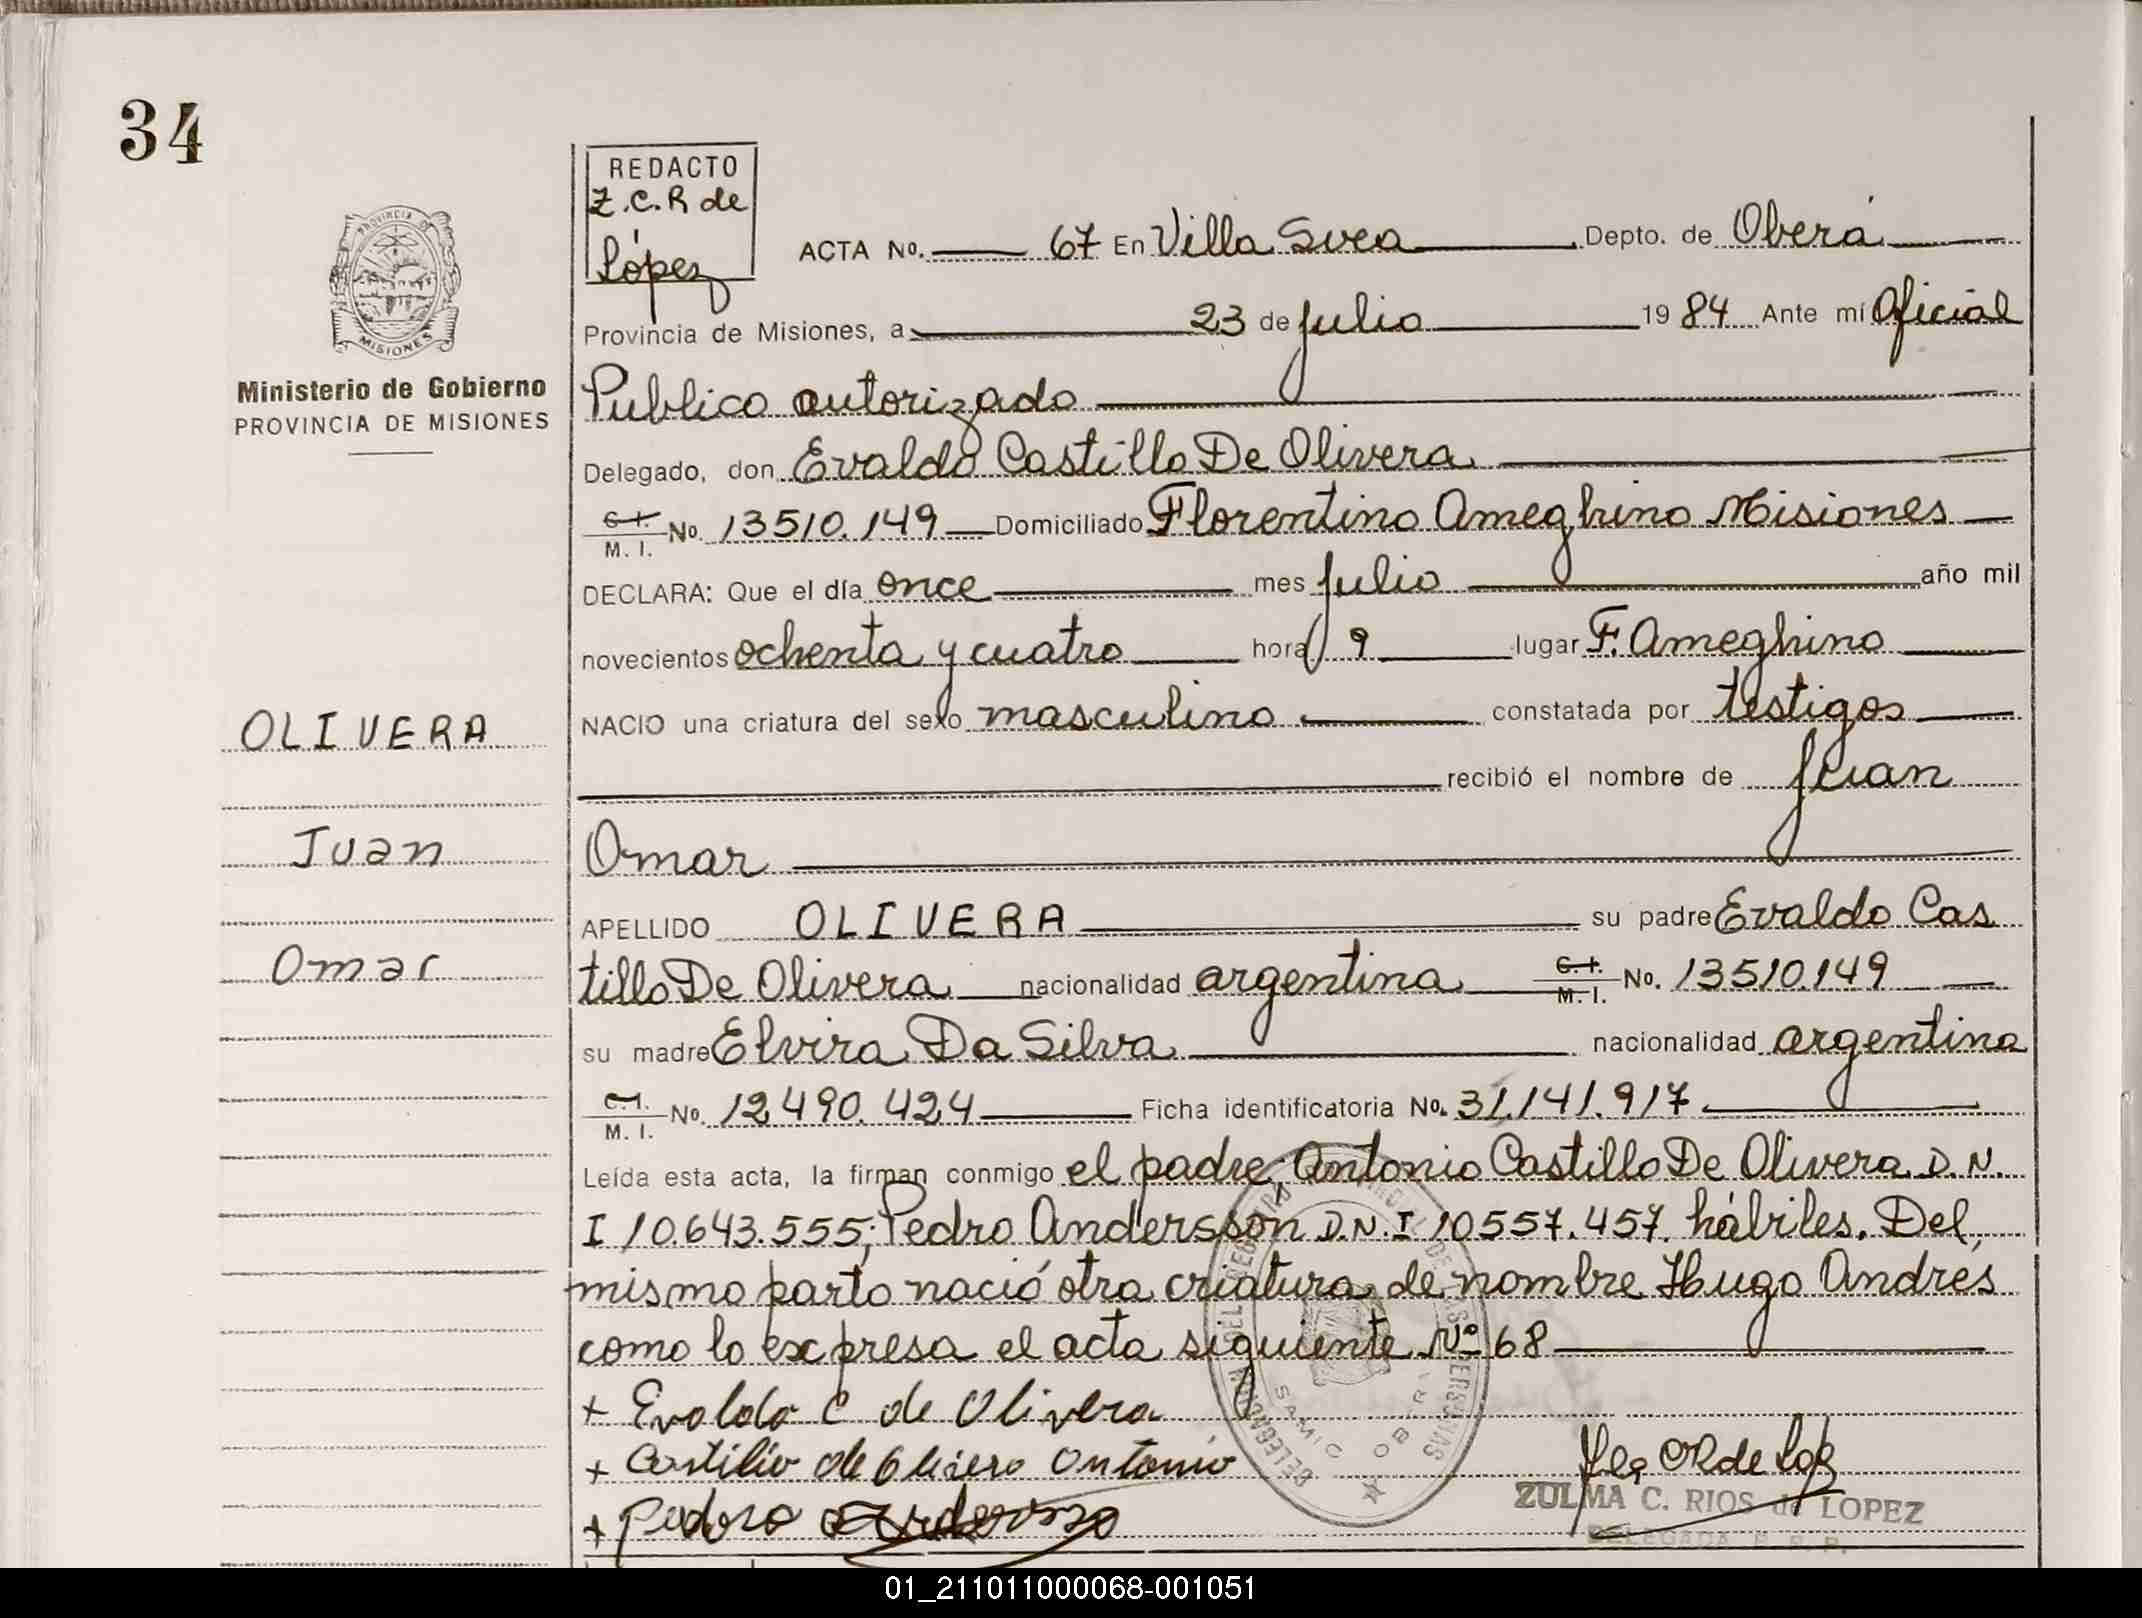 34
REDACTO
Z.C.R de
López
ACTA No. 67 En Villa Svea Depto. de Oberá
Provincia de Misiones, a 23 de julio 1984 Ante mí Oficial
Publico autorizado
Delegado, don Evaldo Castillo De Olivera
C.I. M.I. No. 13510.149 Domiciliado Florentino Ameghino Misiones
DECLARA: Que el día once mes julio año mil
novecientos ochenta y cuatro hora 9 lugar F. Ameghino
NACIO una criatura del sexo masculino constatada por testigos
recibió el nombre de Juan
Omar
APELLIDO OLIVERA su padre Evaldo Cas
tillo De Olivera nacionalidad argentina C.I. M.I. No. 13510.149
su madre Elvira Da Silva nacionalidad argentina
C.I. M.I. No. 12490.424 Ficha identificatoria No. 31.141.917
Leída esta acta, la firman conmigo el padre, Antonio Castillo De Olivera D.N.
I 10.643.555; Pedro Andersson D.N.I 10557.457. hábiles. Del
mismo parto nació otra criatura de nombre Hugo Andrés
como lo expresa el acta siguiente Nº 68
+ Evaldo C de Olivera
+ Castilio de Olivera Antonio
+ Pedro
ZULMA C. RIOS de LOPEZ
DELEGADA
PROVINCIA DE
MISIONES
Ministerio de Gobierno
PROVINCIA DE MISIONES
OLIVERA
Juan
Omar
01_211011000068-001051